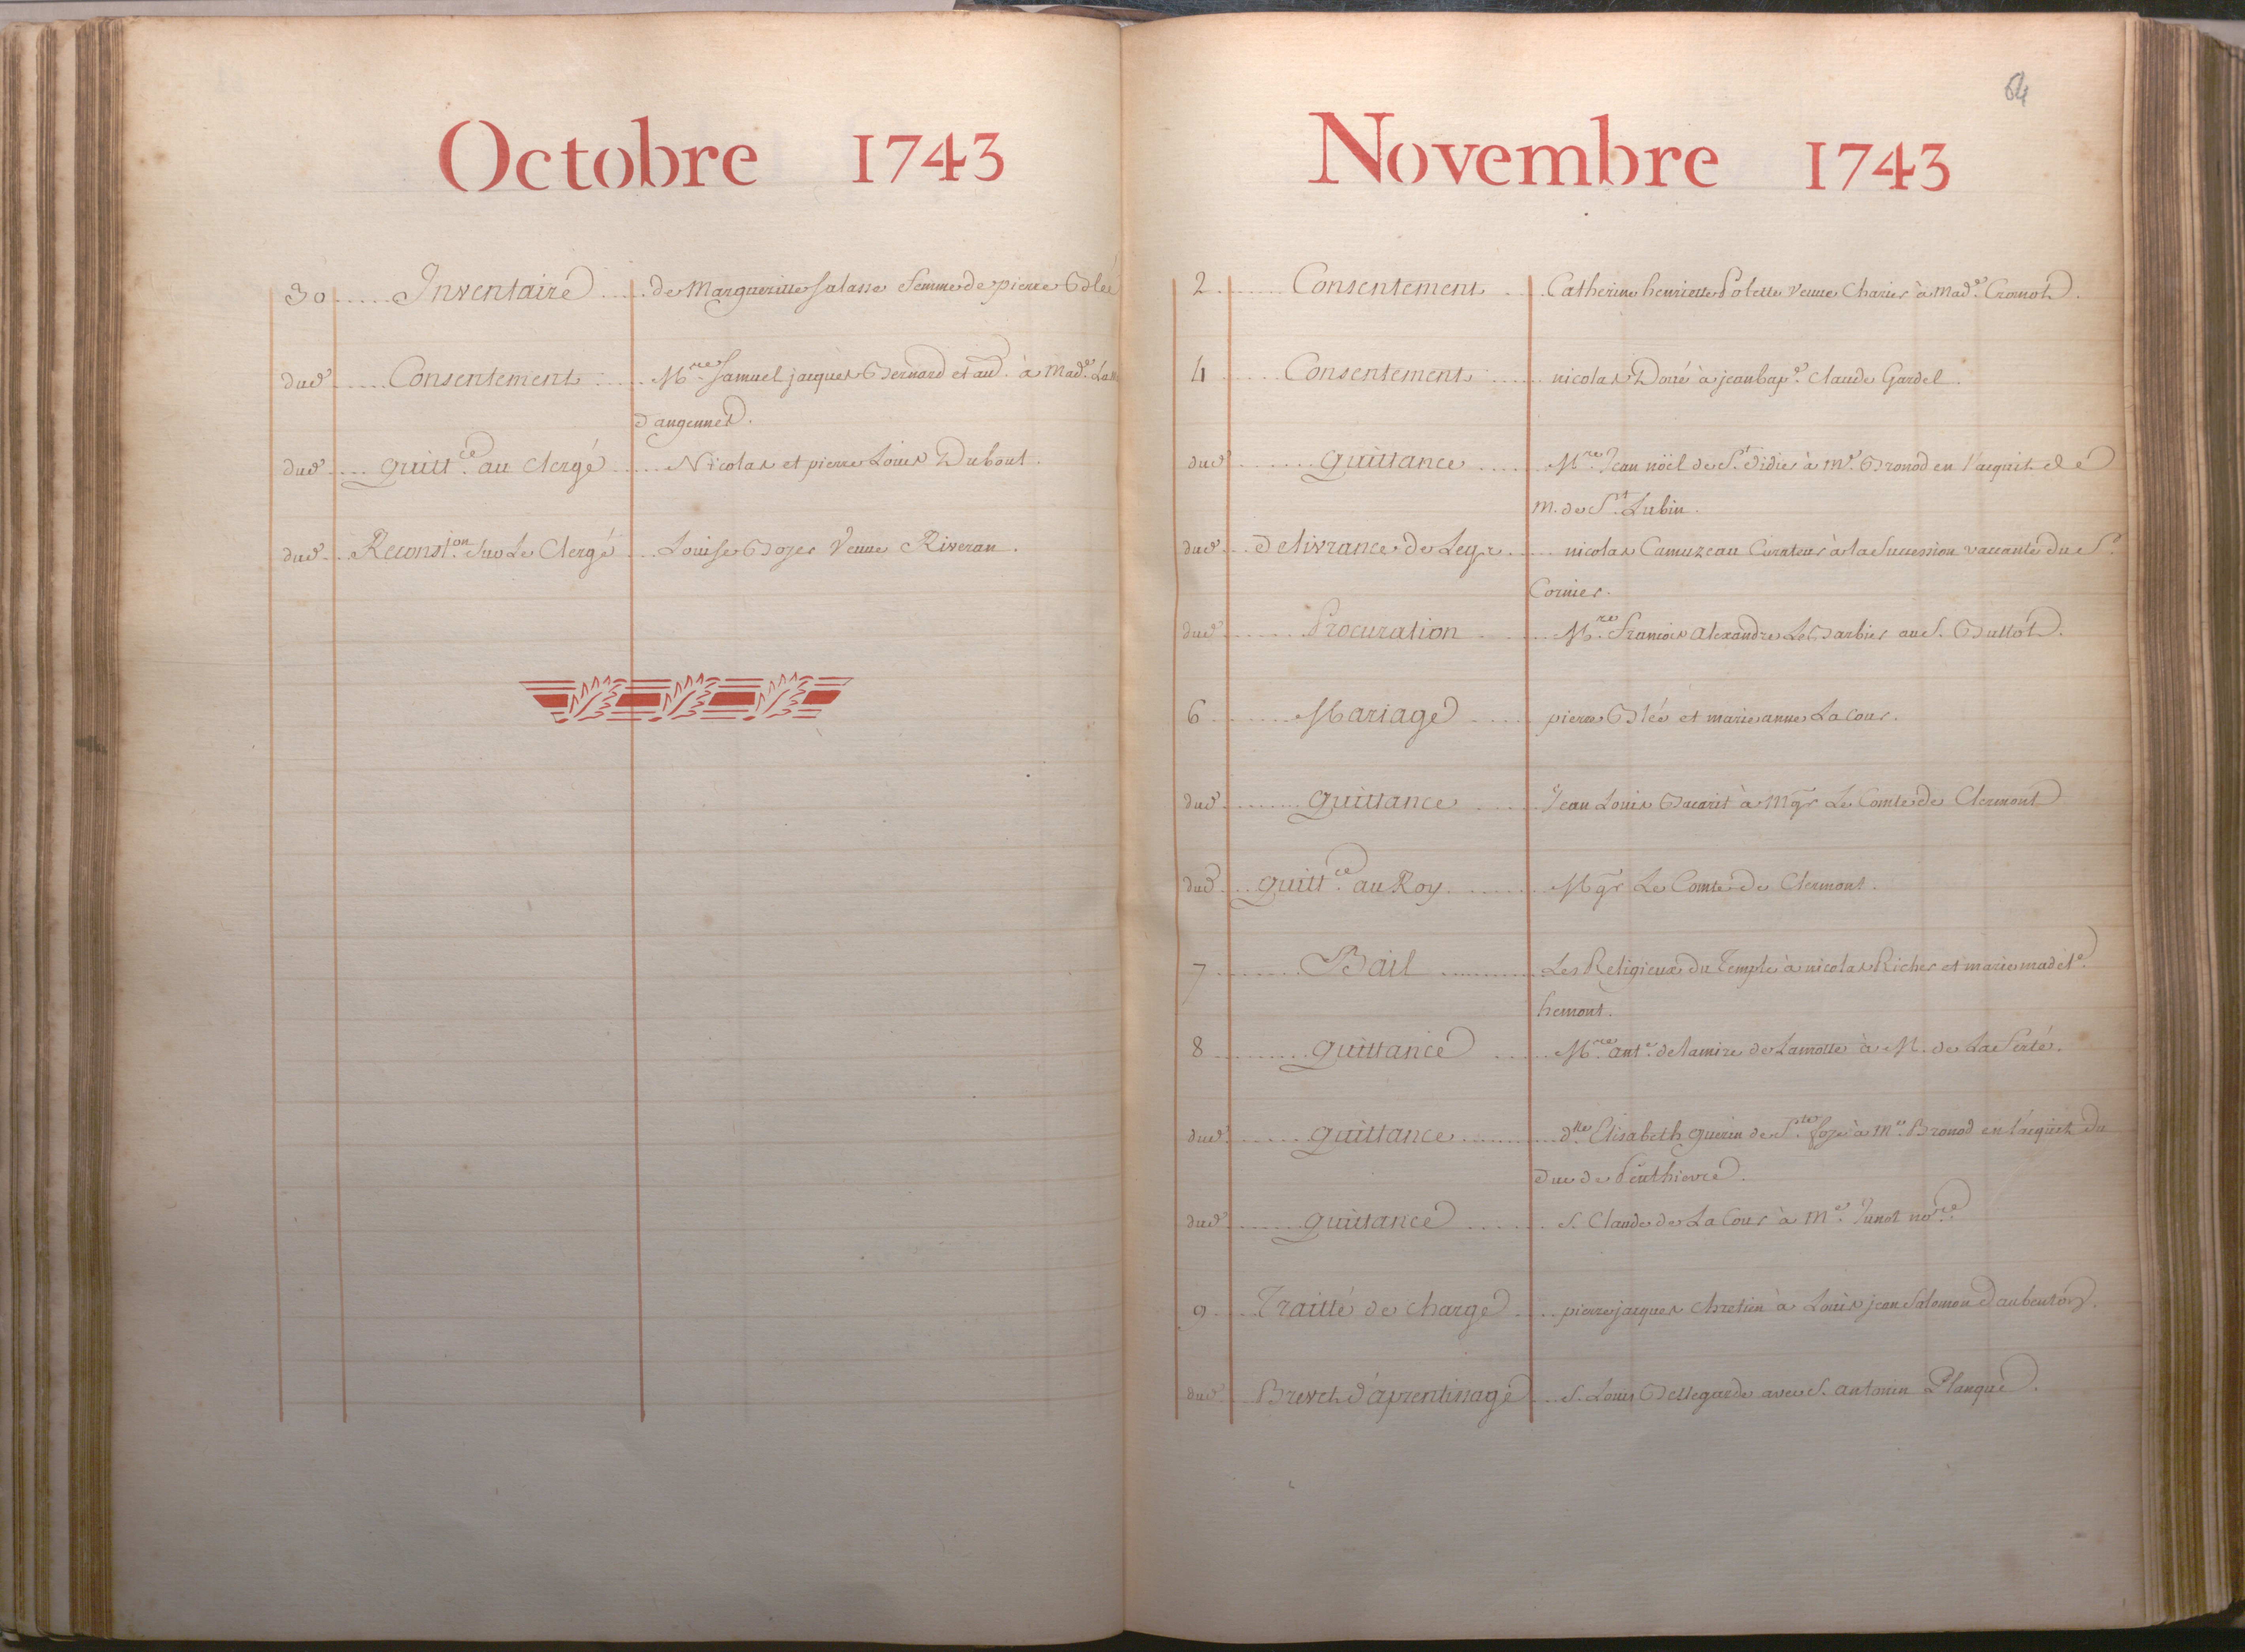 Octobre 1743
30 Inventaire de Margueritte Salasse femme de pierre Blée
dud. Consentement M.re Samuel jacques Bernard et au. à Mad.e
d'angennes.
dud. quitt.ce au Clergé Nicolas et pierre Louis Dubout.
dud. Reconst.on sur Le Clergé Louise Boyer Veuve Riveran.
64
Novembre 1743
2 Consentement Catherine henriette Polette Veuve Charier à Mad.e Cromot.
4 Consentement nicolas Doué à jean bap.e Claude Gardel.
dud. Quittance M.re Jean nöel de S.t didier à M.e Bronod en l'acquit de
M. de S.t Lubin.
dud. Delivrance de Legs nicolas Camuzeau Curateur à la Succession vaccante du S.
Cornier.
dud. Procuration M.re francois alexandre Le Barbier au S. Buttot.
6 Mariage pierre Blée et marie anne Lacour.
dud. quittance Jean Louis à Mgr Le Comte de Clermont
dud. quitt.ce au Roy Mgr Le Comte de Clermont.
7 Bail Les Religieux du Temple à nicolas Richer et marie madel.e
hemont.
8 quittance M.re ant.e delamire de Lamotte à M. de La ferté.
dud. quittance d.lle Elisabeth guerin de S.te foye à M.e Bronod en l'acquit du
duc de Penthievre.
dud. quittance S. Claude de La Cour à M.e Junot no.re
9 Traitté de charge pierre jacques chretien à Louis jean Salomon daubenton.
dud. Brevet d'aprentissage S. Louis Bellegarde avec S. antonin Planque.